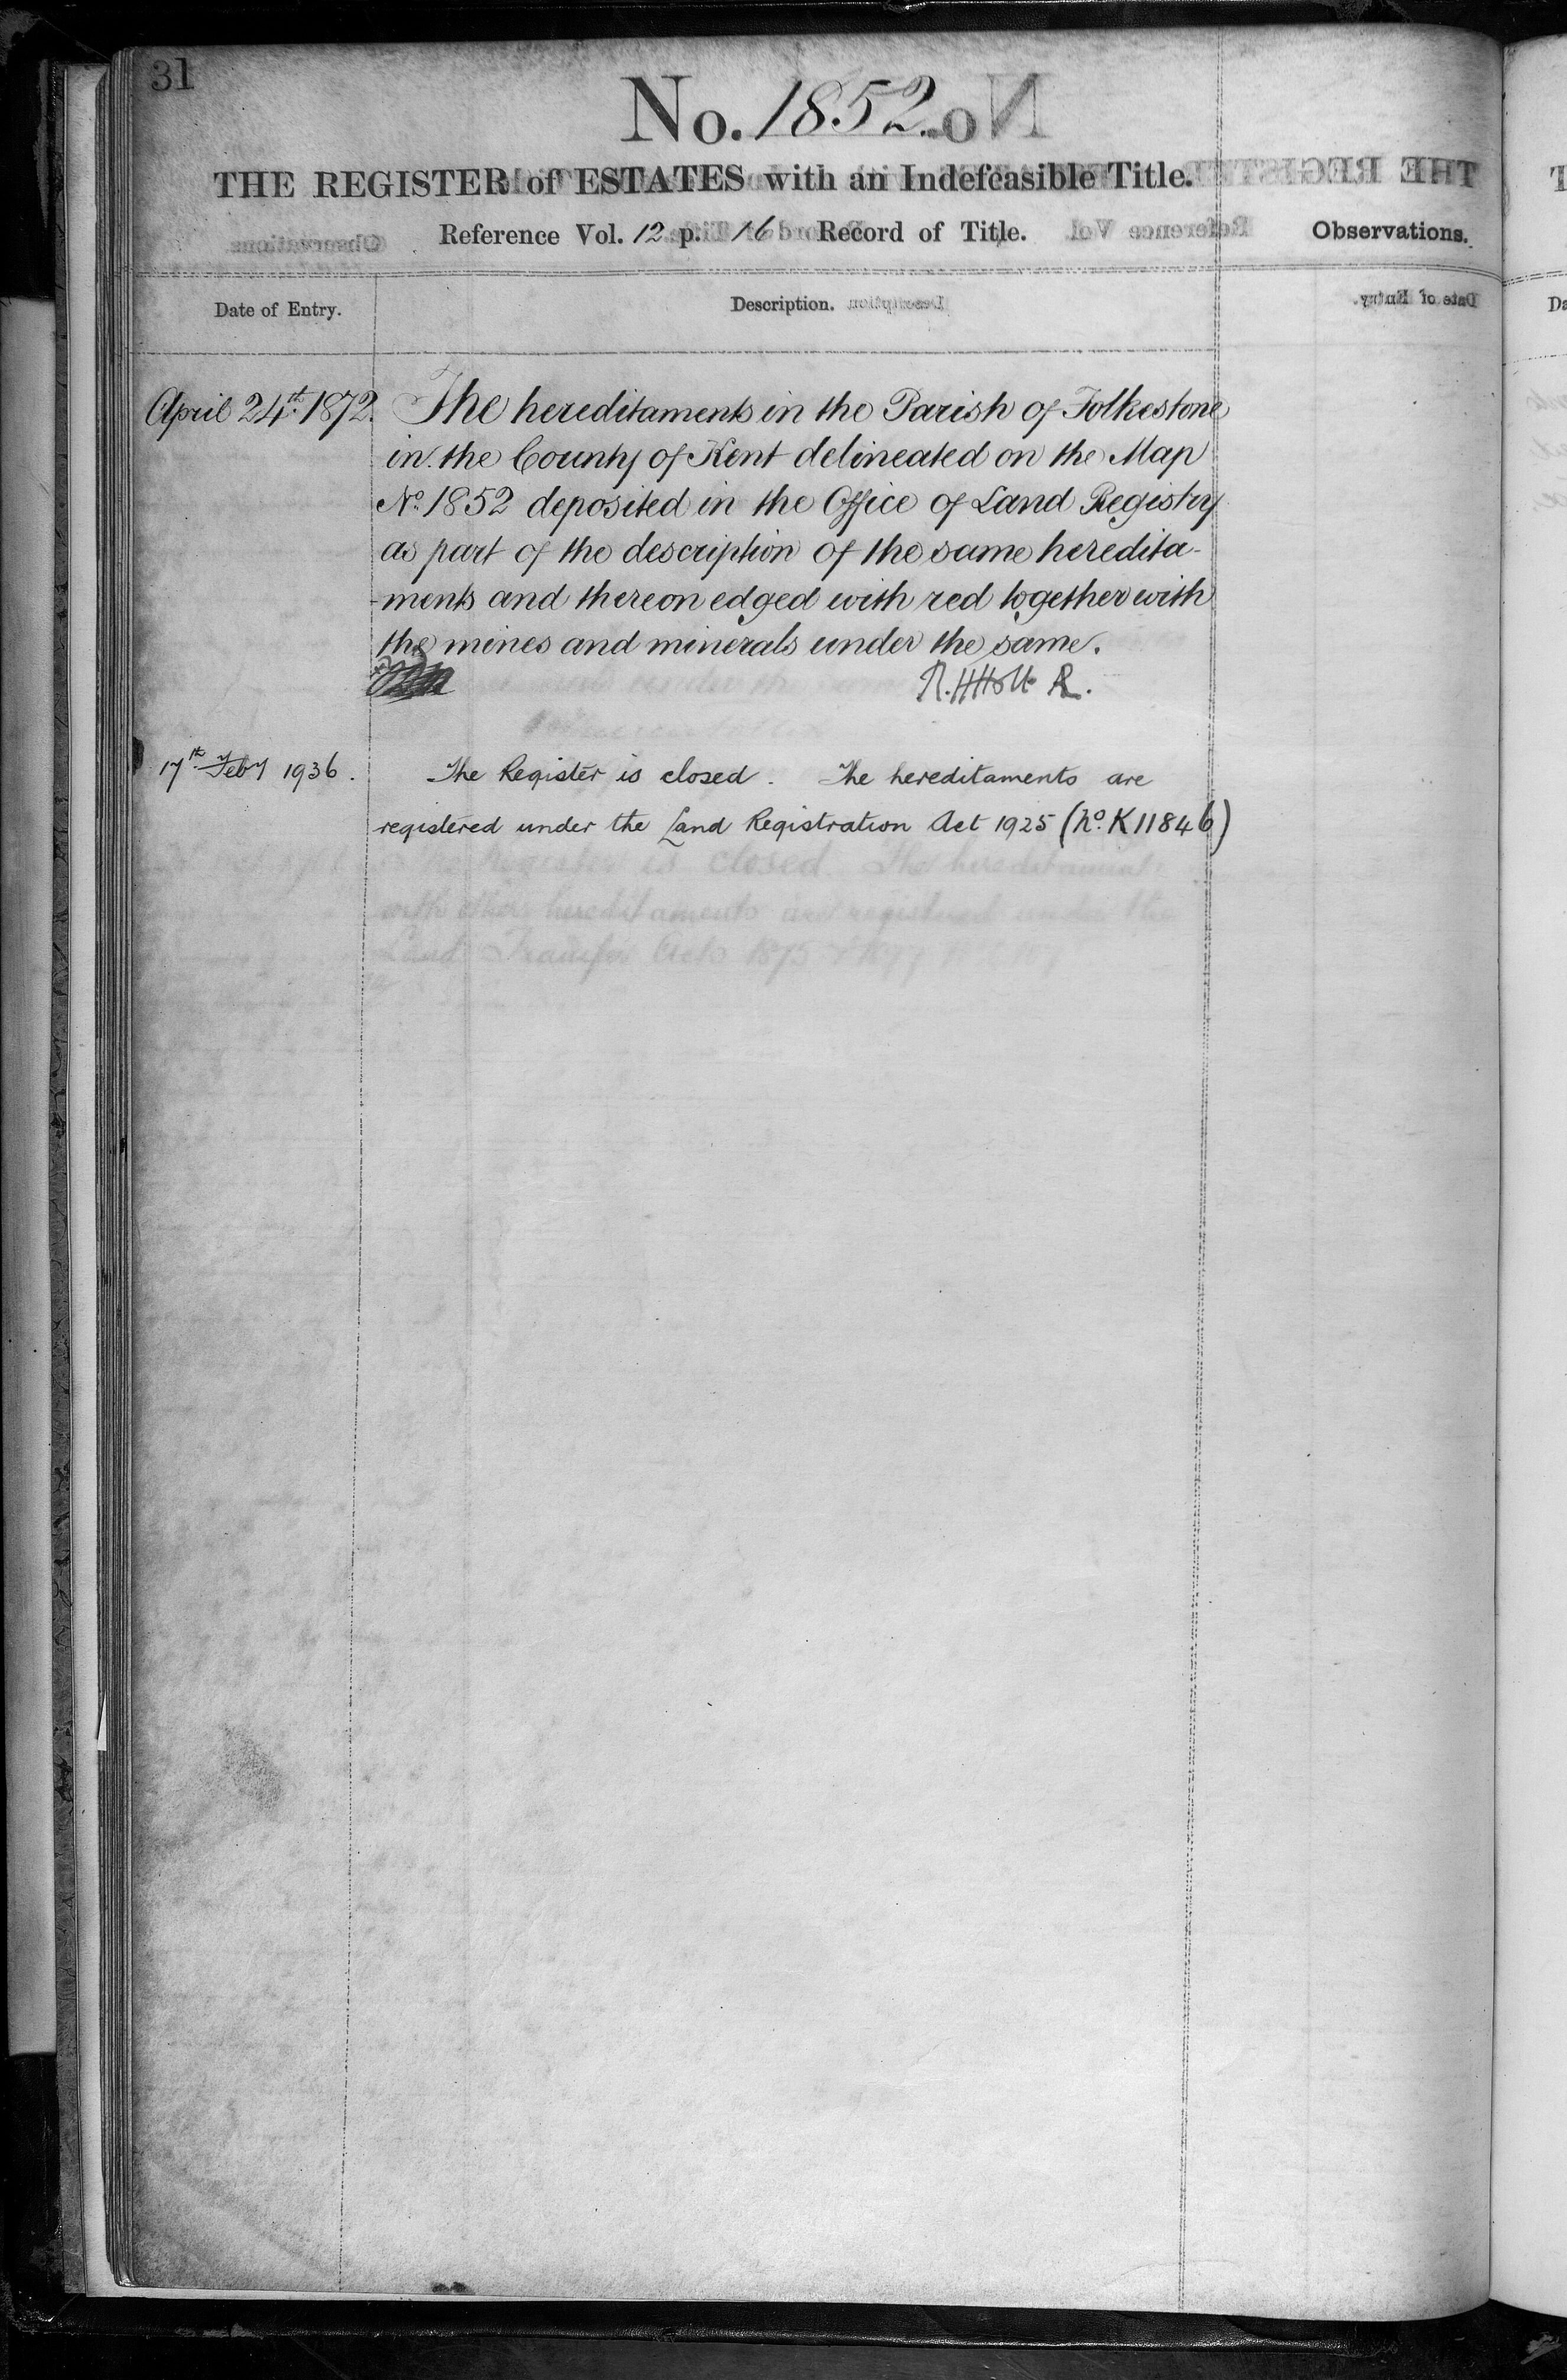 31
No. 1852.
THE REGISTER of ESTATES with an Indefeasible Title.
Reference Vol. 12 p. 16 Record of Title.
Observations.
Date of Entry.
Description.
April 24th. 1872. The hereditaments in the Parish of Folkestone
in the County of Kent delineated on the Map
No. 1852 deposited in the Office of Land Registry
as part of the description of the same heredita-
-ments and thereon edged with red together with
the mines and minerals under the same.
R.H.Holt R.
17th Feby 1936. The Register is closed. The hereditaments are
registered under the Land Registration Act 1925 (No. K11846)
Register is closed. The hereditaments
with other hereditaments are registered under the
Land Transfer Acts 1875